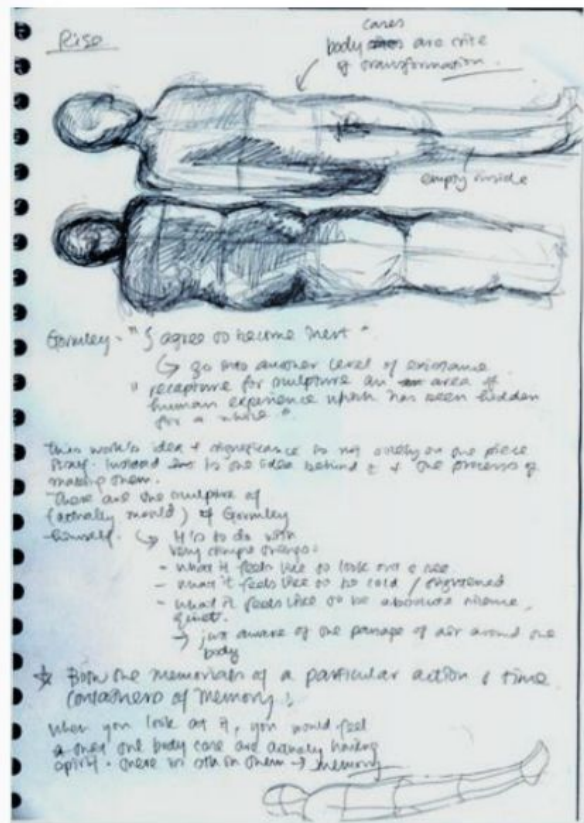 Rise
cases
body are site
of transformation.
empty inside
Gormley - "I agree to become inert"
↳ go into another level of existance.
"recapture for sculpture an area of
human experience which has been hidden
for a while"
this work's idea + significance is not solely on the piece
Instead is the idea behind it + the process of
making them.
These are the sculpture of
(actually mould) of Gormley
himself. ↳ It's to do with
very simple things:
- what it feels like to look out & see.
- what it feels like to be cold / frightened
- what it feels like to be absolute silence,
quiet.
→ just aware of the passage of air around the
body
☆ Both the memorials of a particular action & time
containers of memory!
When you look at it, you would feel
the body case are actually having
spirit. there is in them → memory